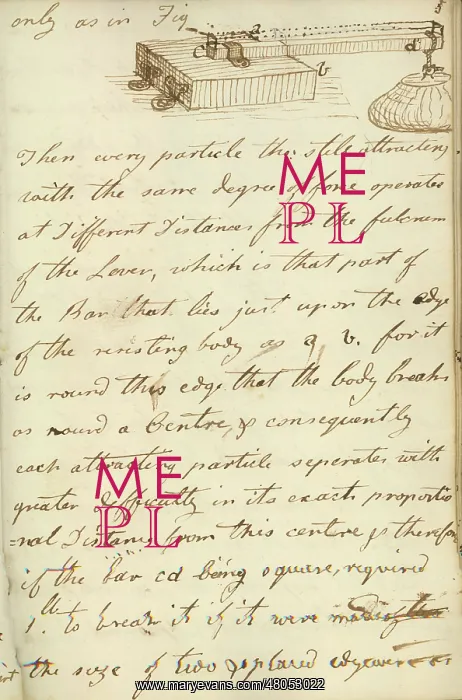 only as in Fig
a
c
d
b
Then every particle tho. still attracting
with the same degree of force operates
at Different Distances from the fulcrum
of the Lever, which is that part of
the Bar that lies just upon the edge
of the resisting body as a b. for it
is round this edge that the body breaks
as round a Centre, & consequently
each attracting particle seperates with
greater Difficulty in its exact proportio
=nal Distance from this centre & therefore
if the bar cd being square, required
1 lb. to break it if it were made of
the size of two & placed edgewise
ME
PL
ME
PL
www.maryevans.com/48053022